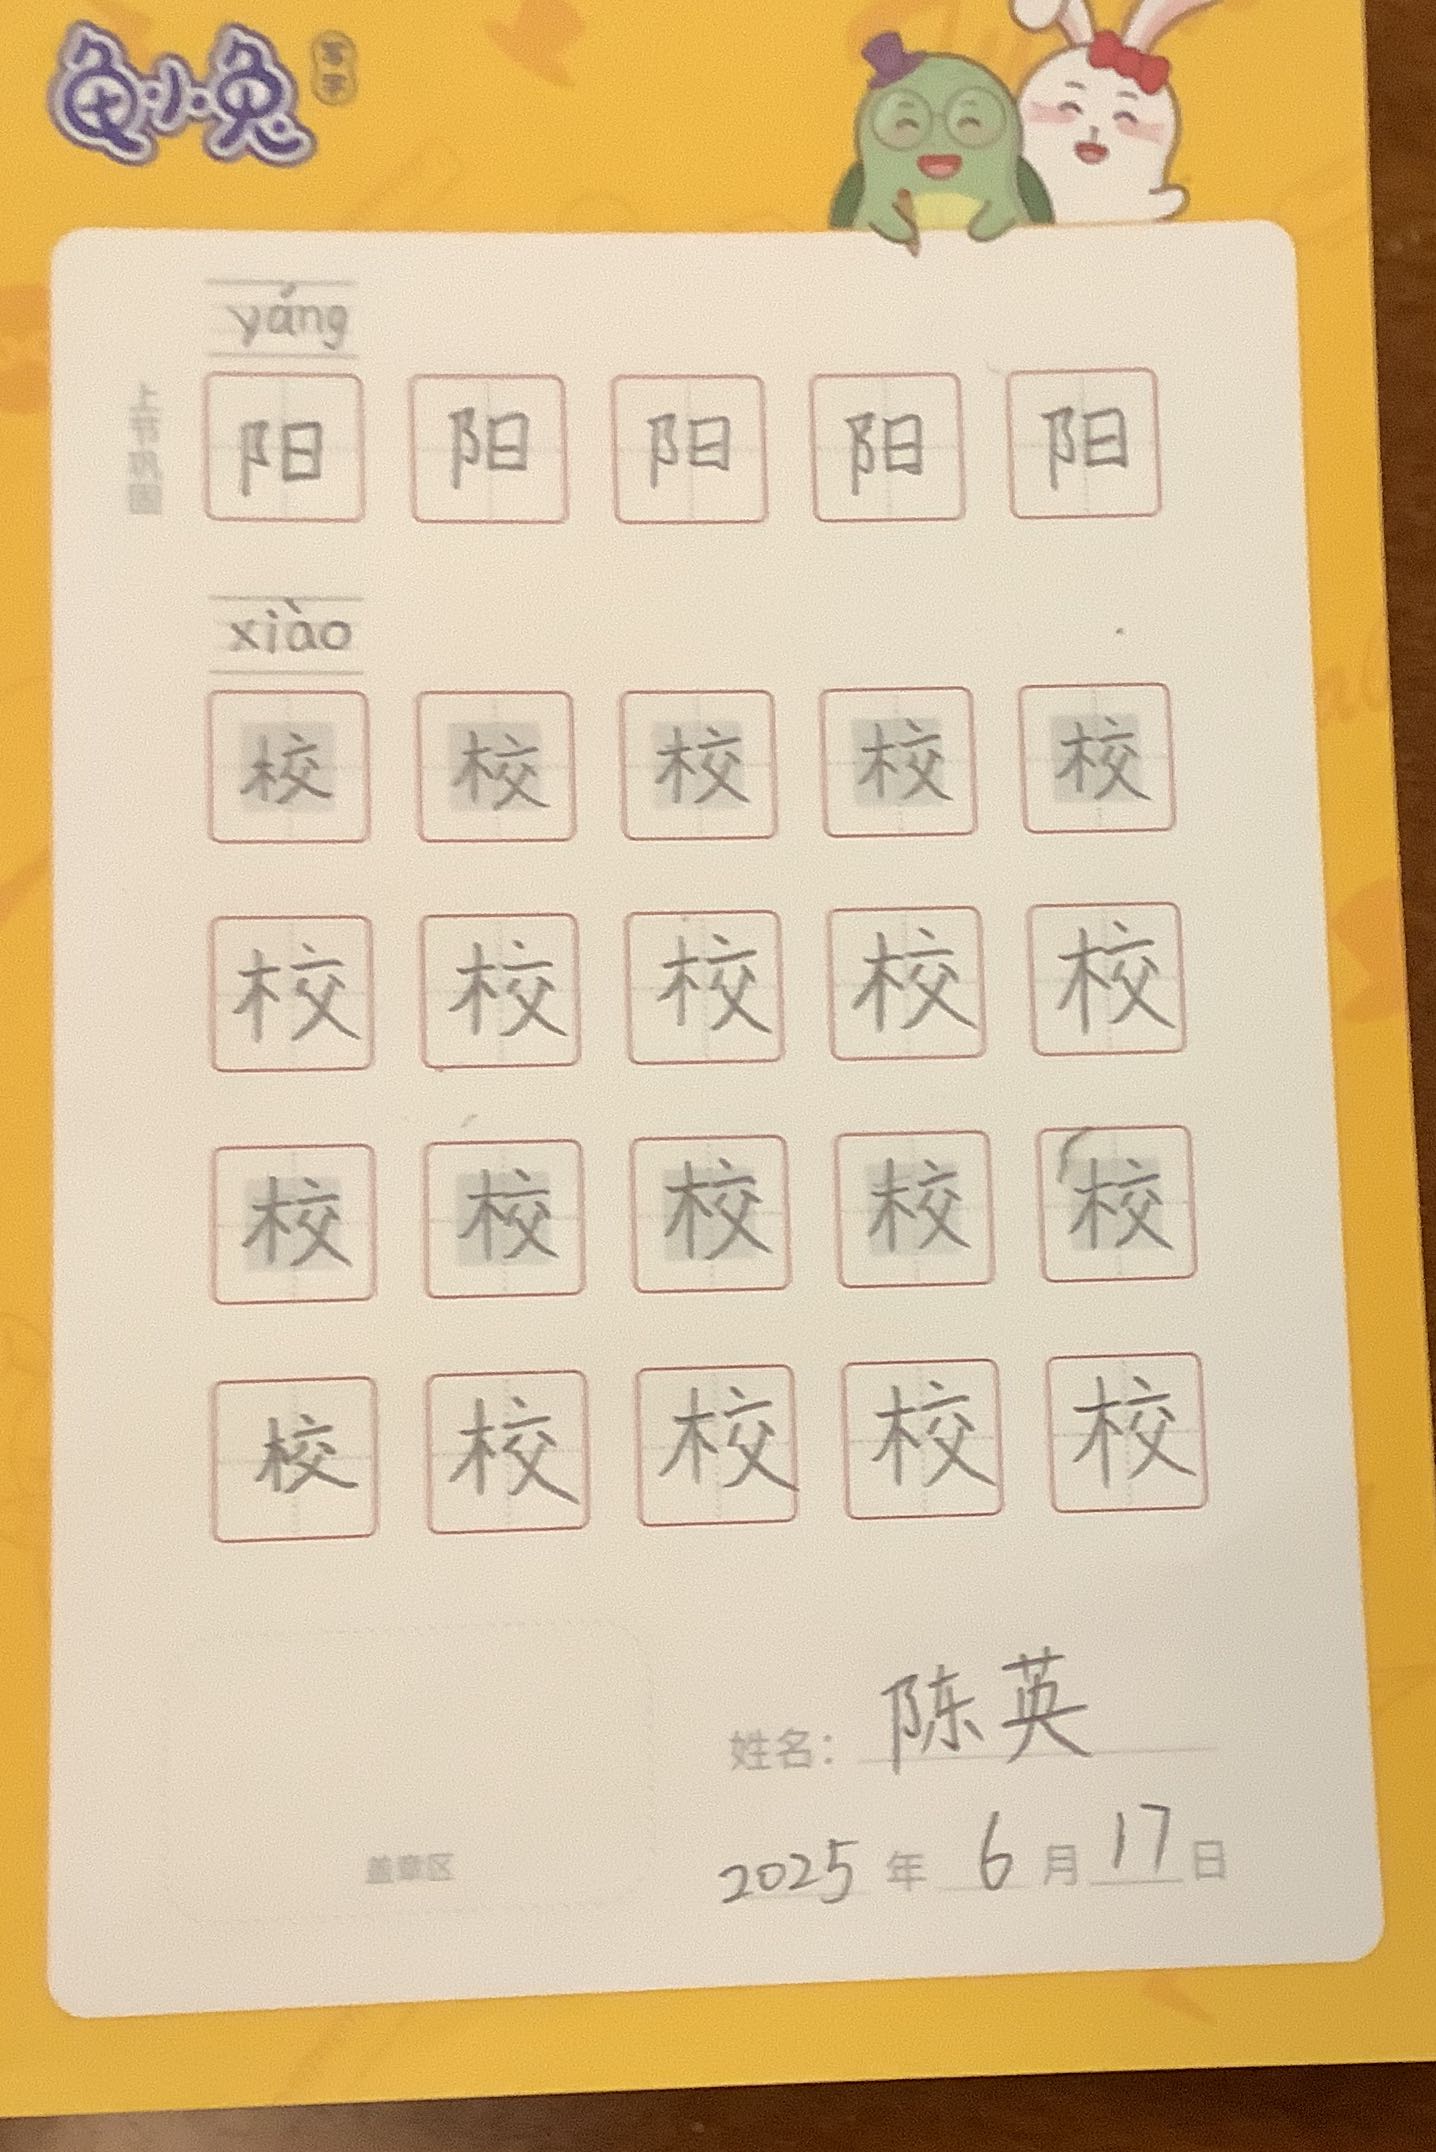 龟小兔
写字
yáng
上节巩固
阳 阳 阳 阳 阳
xiào
校 校 校 校 校
校 校 校 校 校
校 校 校 校 校
校 校 校 校 校
姓名：陈英
盖章区
2025年6月17日